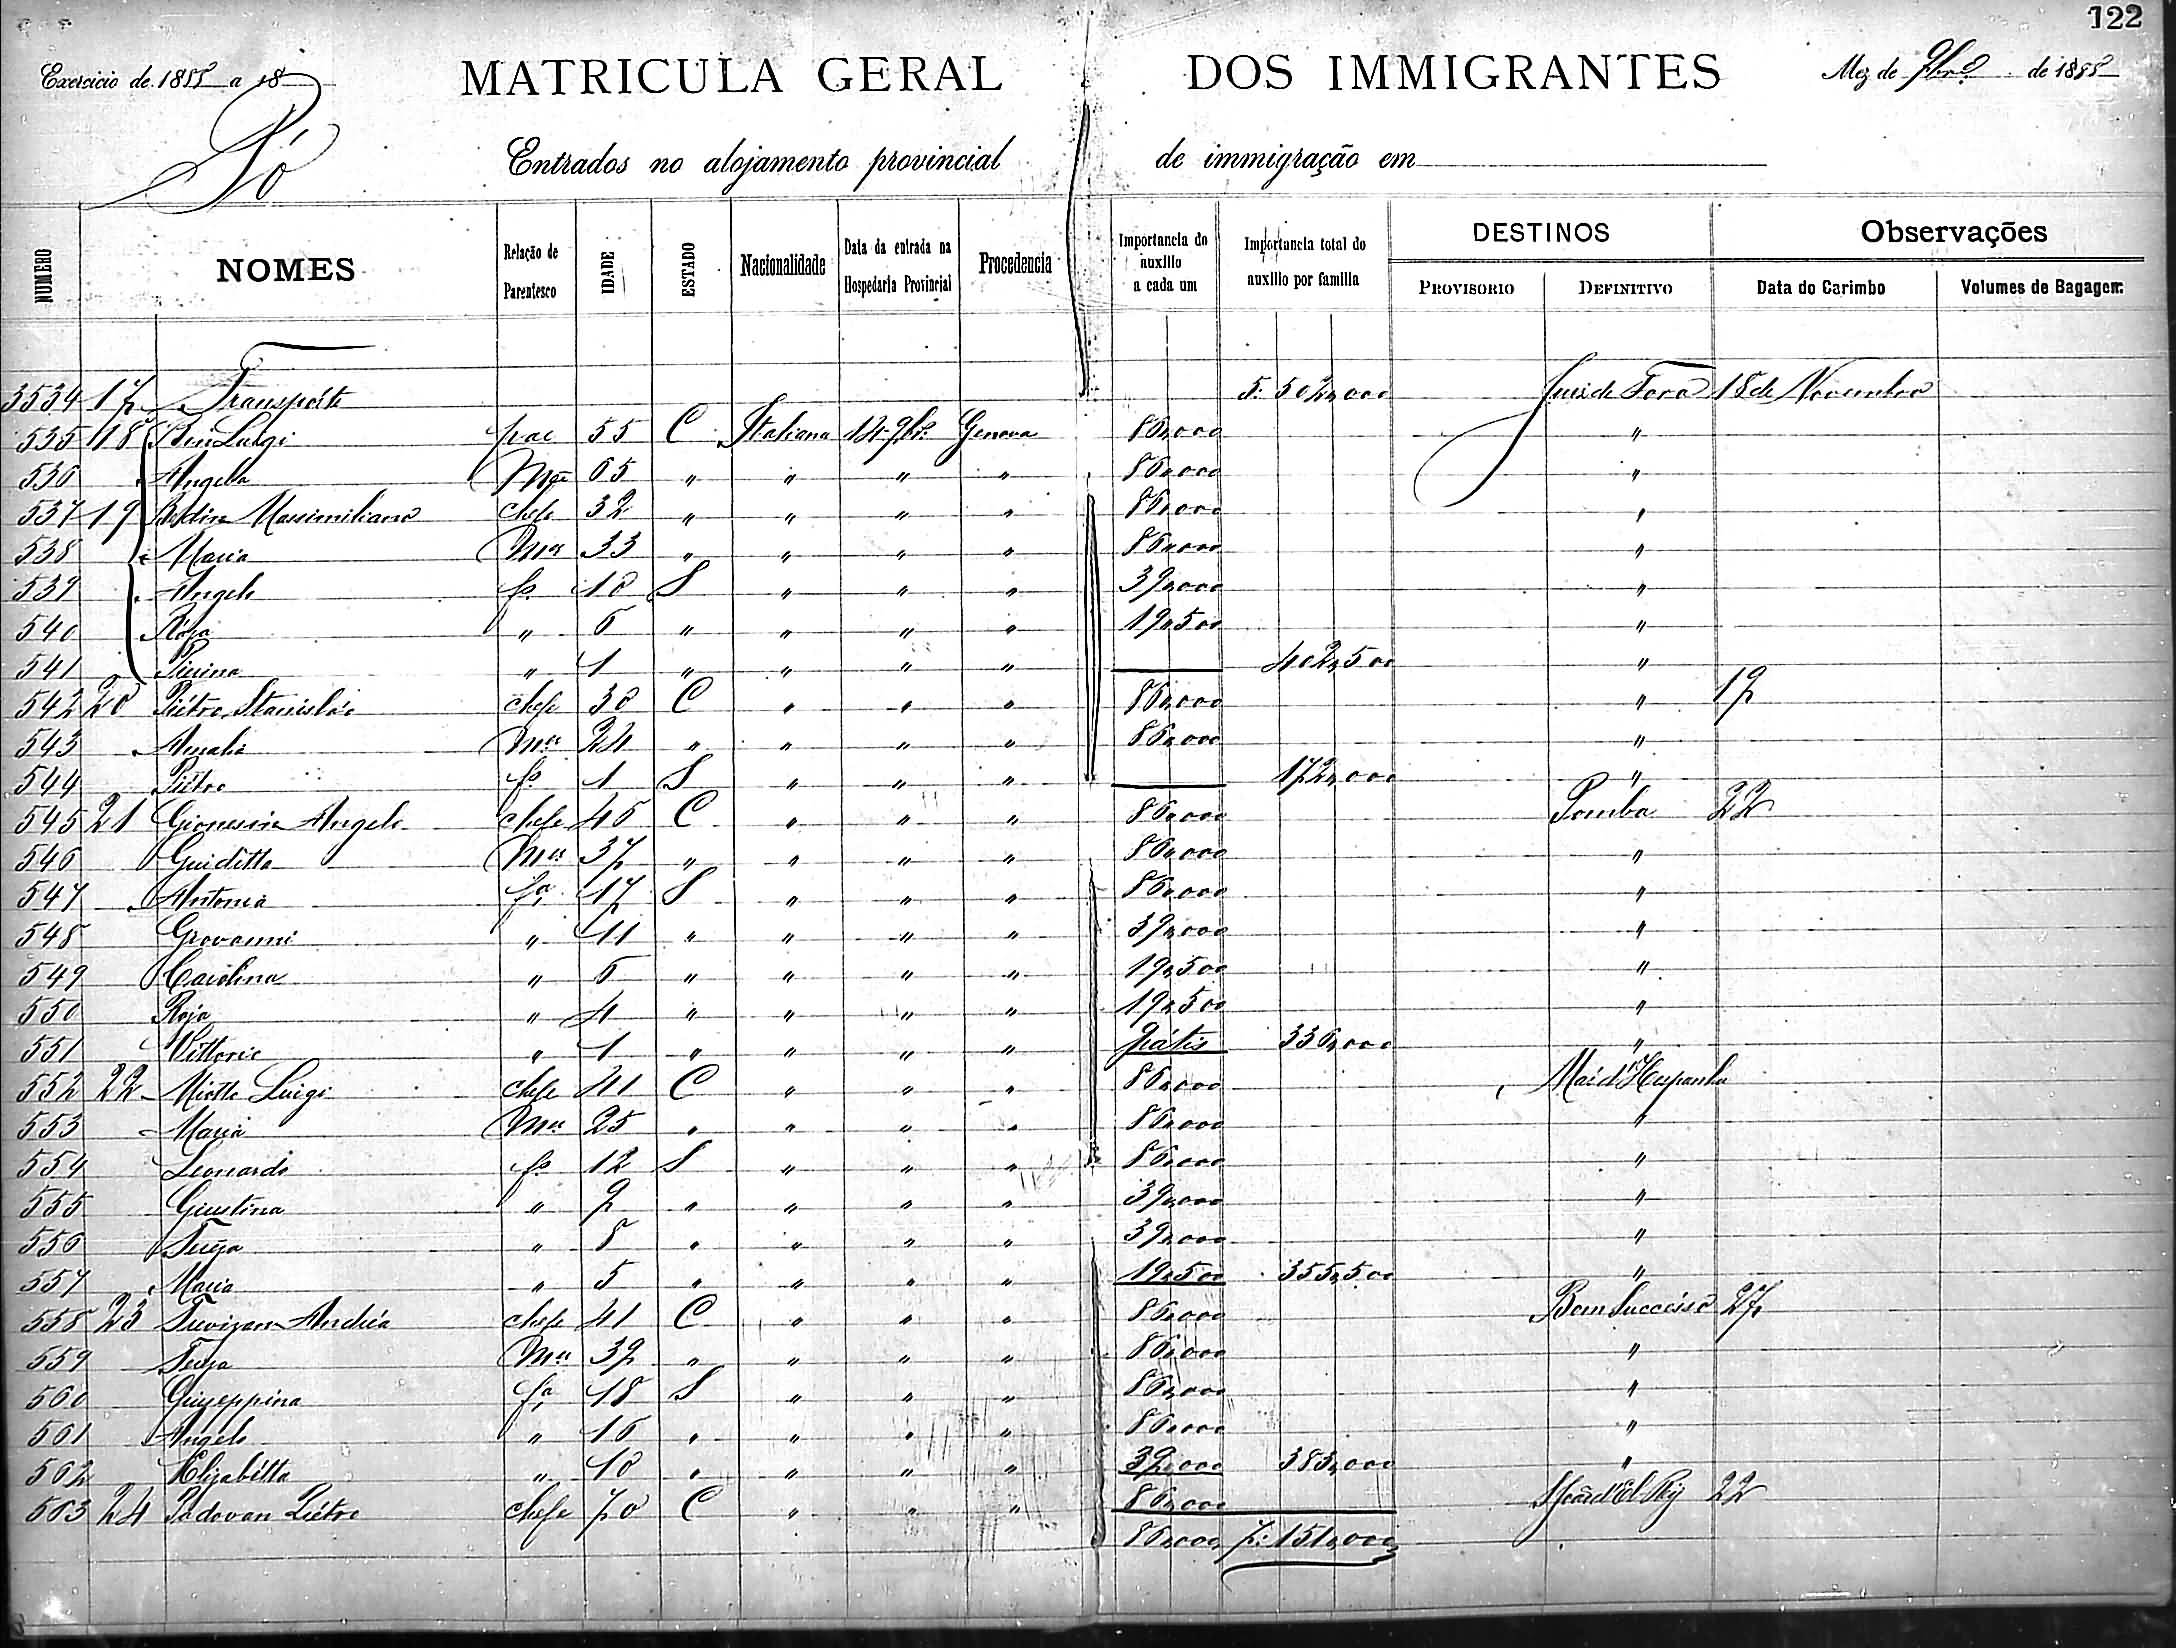 122
Exercicio de 1888 a 18
MATRICULA GERAL DOS IMMIGRANTES
Mez de 9bro de 1888
Pó
Entrados no alojamento provincial de immigração em
NUMERO NOMES Relação de Parentesco IDADE ESTADO Nacionalidade Data da entrada na Hospedaria Provincial Procedencia Importancia do auxilio a cada um Importancia total do auxilio por familia DESTINOS PROVISORIO DEFINITIVO Observações Data do Carimbo Volumes de Bagagem
3534 17 Transporte 5: 502,000 Juiz de Fora 18 de Novembro
535 18 Luigi pae 55 C Italiana 14-9bro Genova 86,000 "
536 Angela Mãe 65 " " " " 86,000 "
537 19 Massimiliano chefe 32 " " " " 86,000 "
538 Maria Mer 33 " " " " 86,000 "
539 Angelo fo 10 S " " " 39,000 "
540 Roza " 6 " " " " 19,500 "
541 Pierina " 1 " " " " 402,500 "
542 20 Piétro Stanisláo chefe 30 C " " " 86,000 " 19
543 Amalia Mer 24 " " " " 86,000 "
544 Piétro fo 1 S " " " 172,000 "
545 21 Angelo chefe 46 C " " " 86,000 Pomba 22
546 Guiditta Mer 37 " " " " 86,000 "
547 Antonia fa 17 S " " " 86,000 "
548 Giovanni " 11 " " " " 39,000 "
549 Carolina " 6 " " " " 19,500 "
550 Roza " 4 " " " " 19,500 "
551 Vittorio " 1 " " " " Grátis 336,000 "
552 22 Miotto Luigi chefe 41 C " " " 86,000 Mar d'Hespanha
553 Maria Mer 25 " " " " 86,000 "
554 Leonardo fo 12 S " " " 86,000 "
555 Giustina " 9 " " " " 39,000 "
556 Tereza " 8 " " " " 39,000 "
557 Maria " 5 " " " " 19,500 355,500 "
558 23 Trevizan Andréa chefe 41 C " " " 86,000 Bom Successo 27
559 Tereza Mer 39 " " " " 86,000 "
560 Giuzeppina fa 18 S " " " 86,000 "
561 Angelo " 16 " " " " 86,000 "
562 Elizabétta " 10 " " " " 39,000 383,000 "
563 24 Padovan Piétro chefe 70 C " " " 86,000 S João d'El Rey 22
86,000 7: 151,000